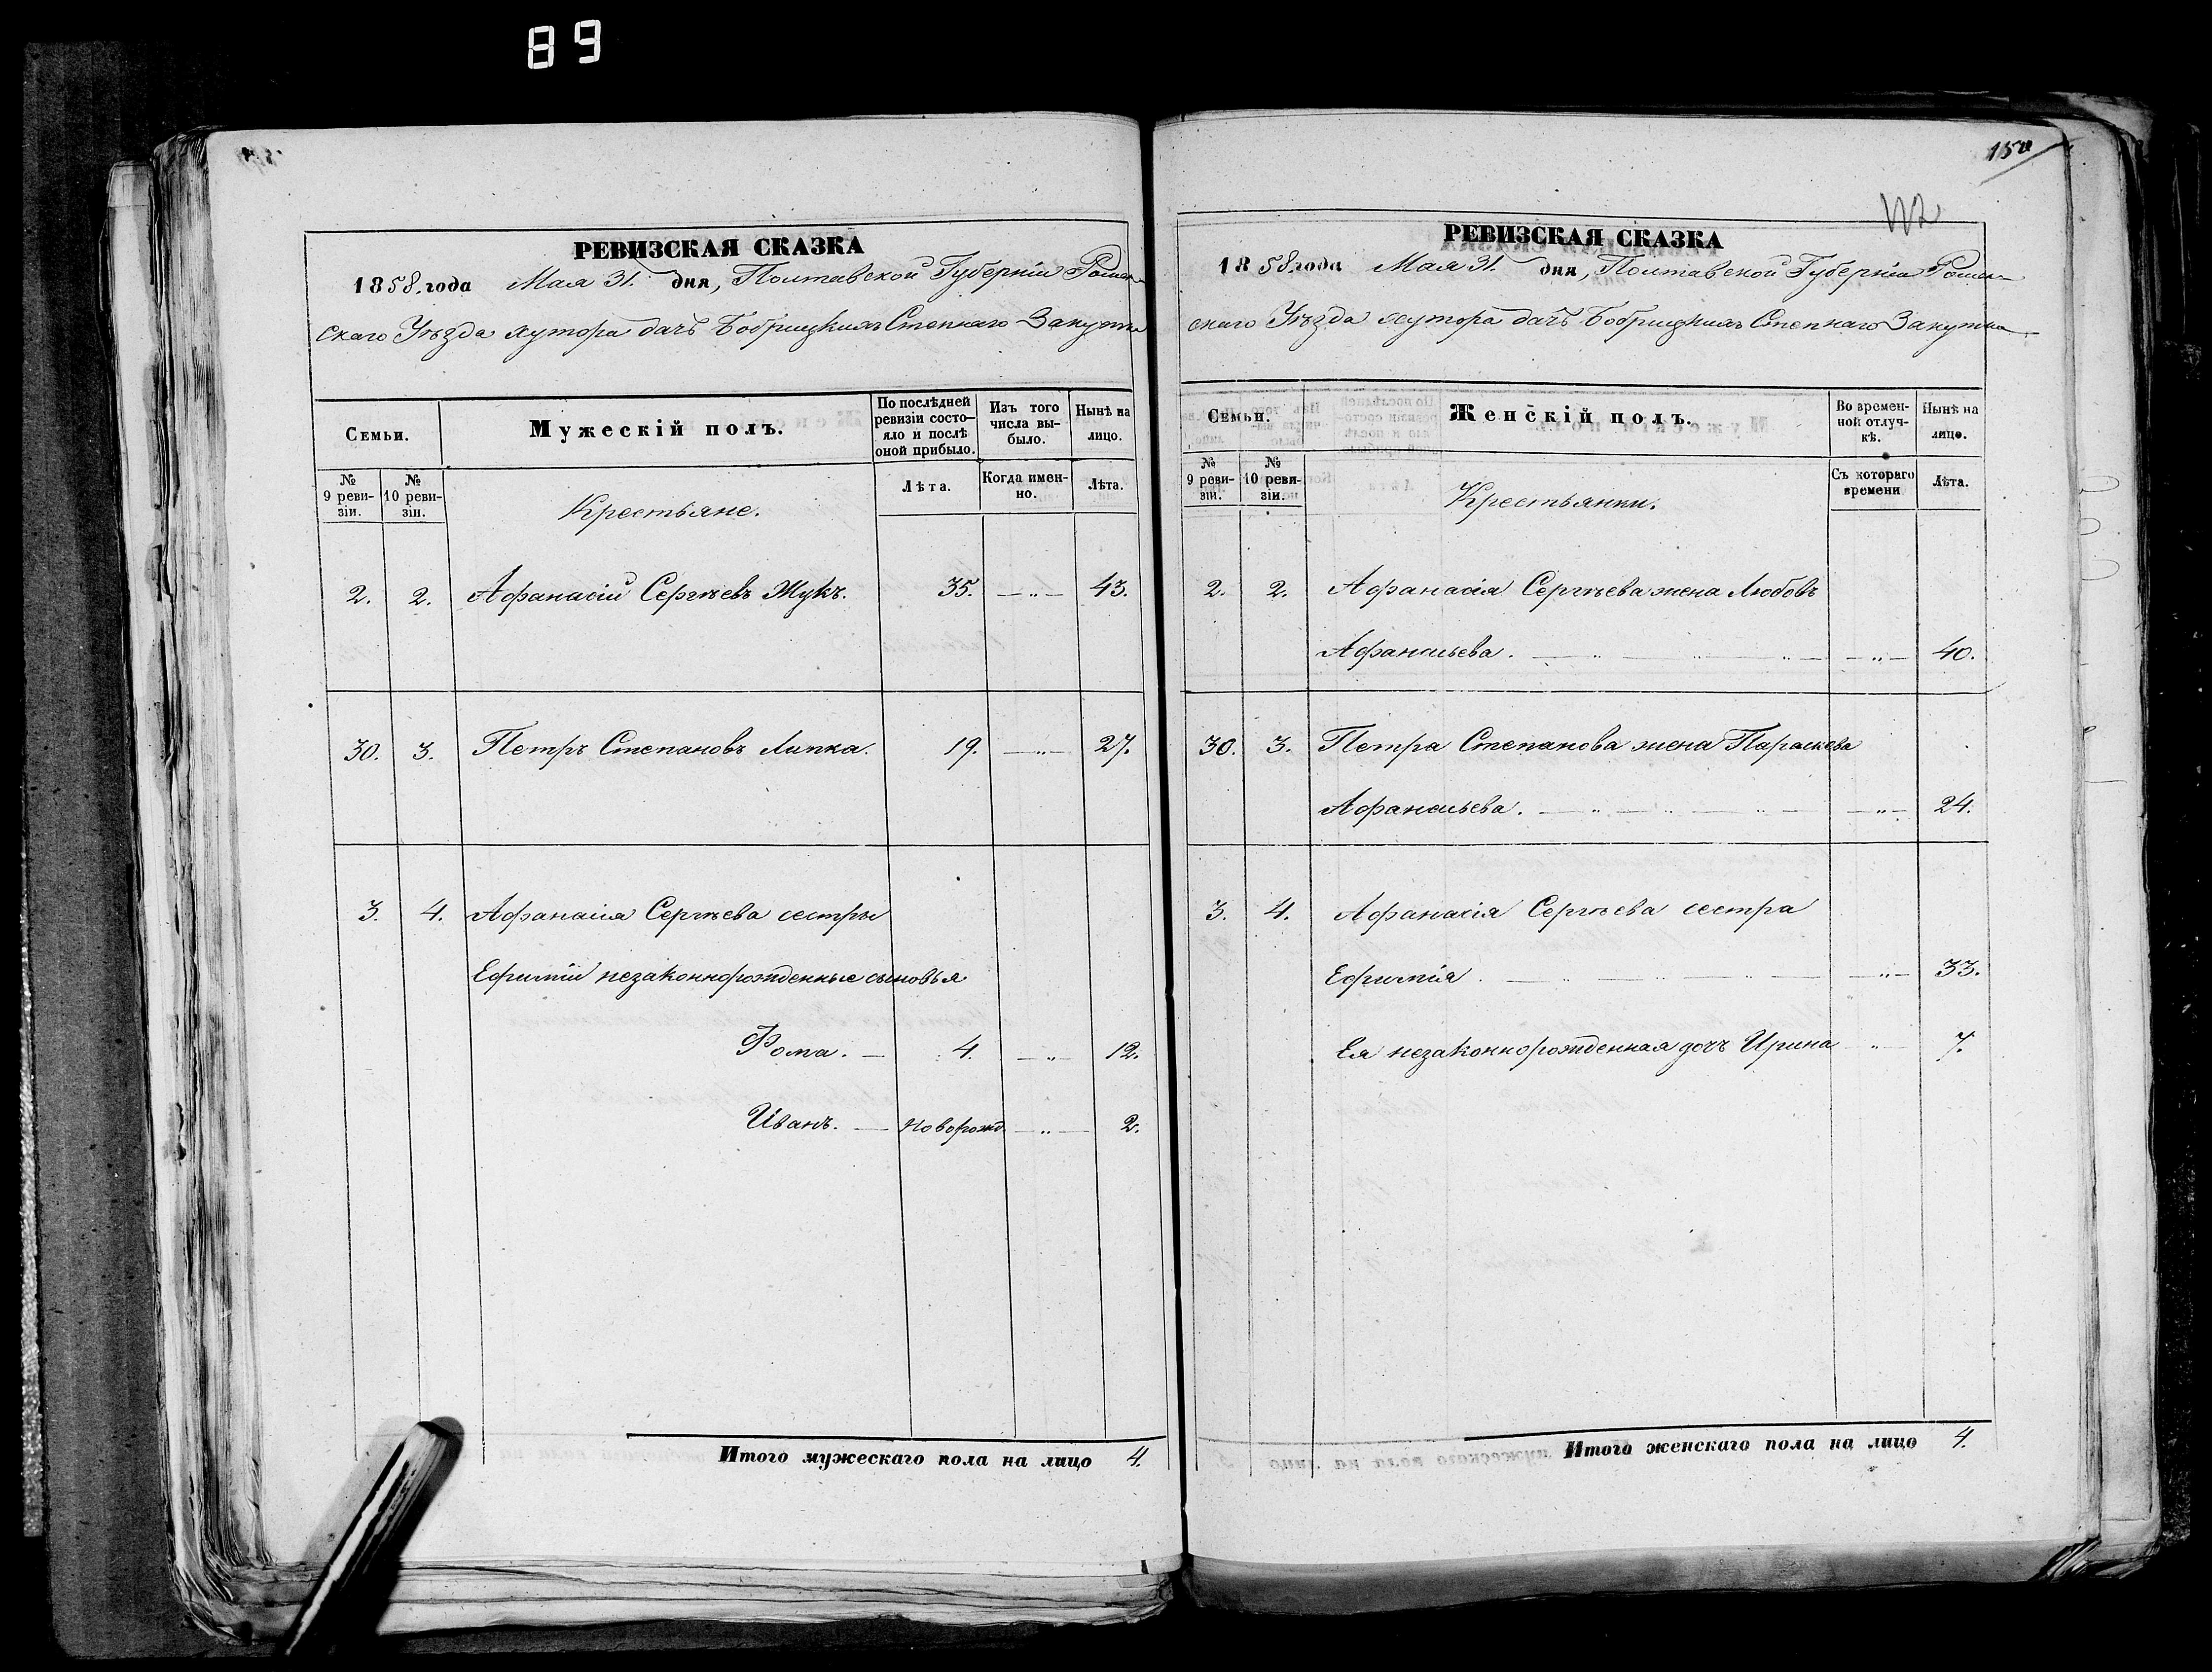 89
РЕВИЗСКАЯ СКАЗКА
1858. года Мая 31. дня, Полтавской Губерніи Ромен-
скаго Уѣзда хутора дачъ Бобрицкихъ Степнаго Закутка
Семьи.
Мужескій полъ.
По послѣдней ревизіи состо-
яло и послѣ оной прибыло.
Изъ того числа вы-
было.
Нынѣ на лицо.
№ 9 реви-
зіи.
№ 10 реви-
зіи.
Крестьяне.
Лѣта.
Когда имен-
но.
Лѣта.
2. 2. Афанасій Сергѣевъ Жукъ. 35. — „ — 43.
30. 3. Петръ Степановъ Липка. 19. — „ — 27.
3. 4. Афанасія Сергѣева сестры
Ефиміи незаконнорожденные сыновья
Фома. — 4. — „ — 12.
Иванъ. — Новорожд. — „ — 2.
Итого мужескаго пола на лицо 4.
150
РЕВИЗСКАЯ СКАЗКА
1858. года Мая 31. дня, Полтавской Губерніи Ромен-
скаго Уѣзда хутора дачъ Бобрицкихъ Степнаго Закутка
Семьи.
Женскій полъ.
Во времен-
ной отлуч-
кѣ.
Нынѣ на лицо.
№ 9 реви-
зіи.
№ 10 реви-
зіи.
Крестьянки.
Съ котораго времени
Лѣта.
2. 2. Афанасія Сергѣева жена Любовь
Афанасьева. — „ — „ — — „ — 40.
30. 3. Петра Степанова жена Параскева
Афанасьева. — „ — „ — „ — — „ — 24.
3. 4. Афанасія Сергѣева сестра
Ефимія. — „ — „ — „ — — „ — 33.
Ея незаконнорожденная дочь Ирина „ 7.
Итого женскаго пола на лицо 4.